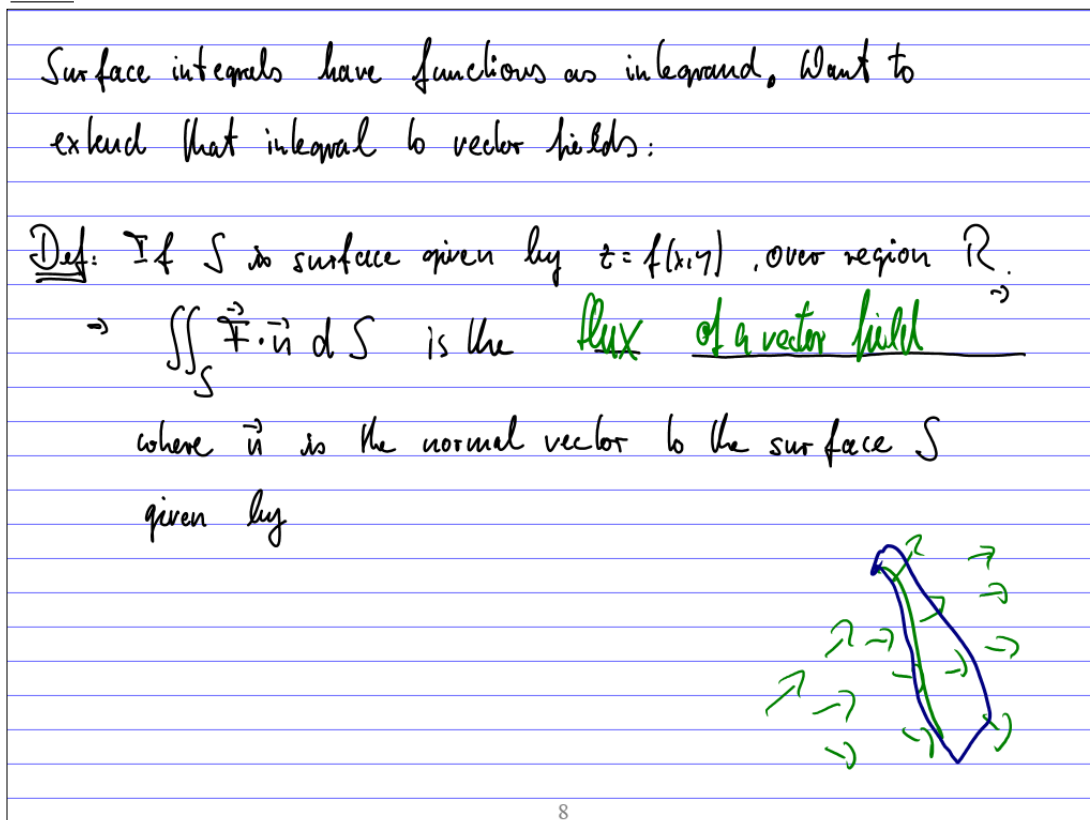 Surface integrals have functions as integrand. Want to
extend that integral to vector fields:
Def: If S is surface given by z = f(x,y), over region R.
⇒ ∬_S F⃗·n⃗ dS is the flux of a vector field
where n⃗ is the normal vector to the surface S
given by
8